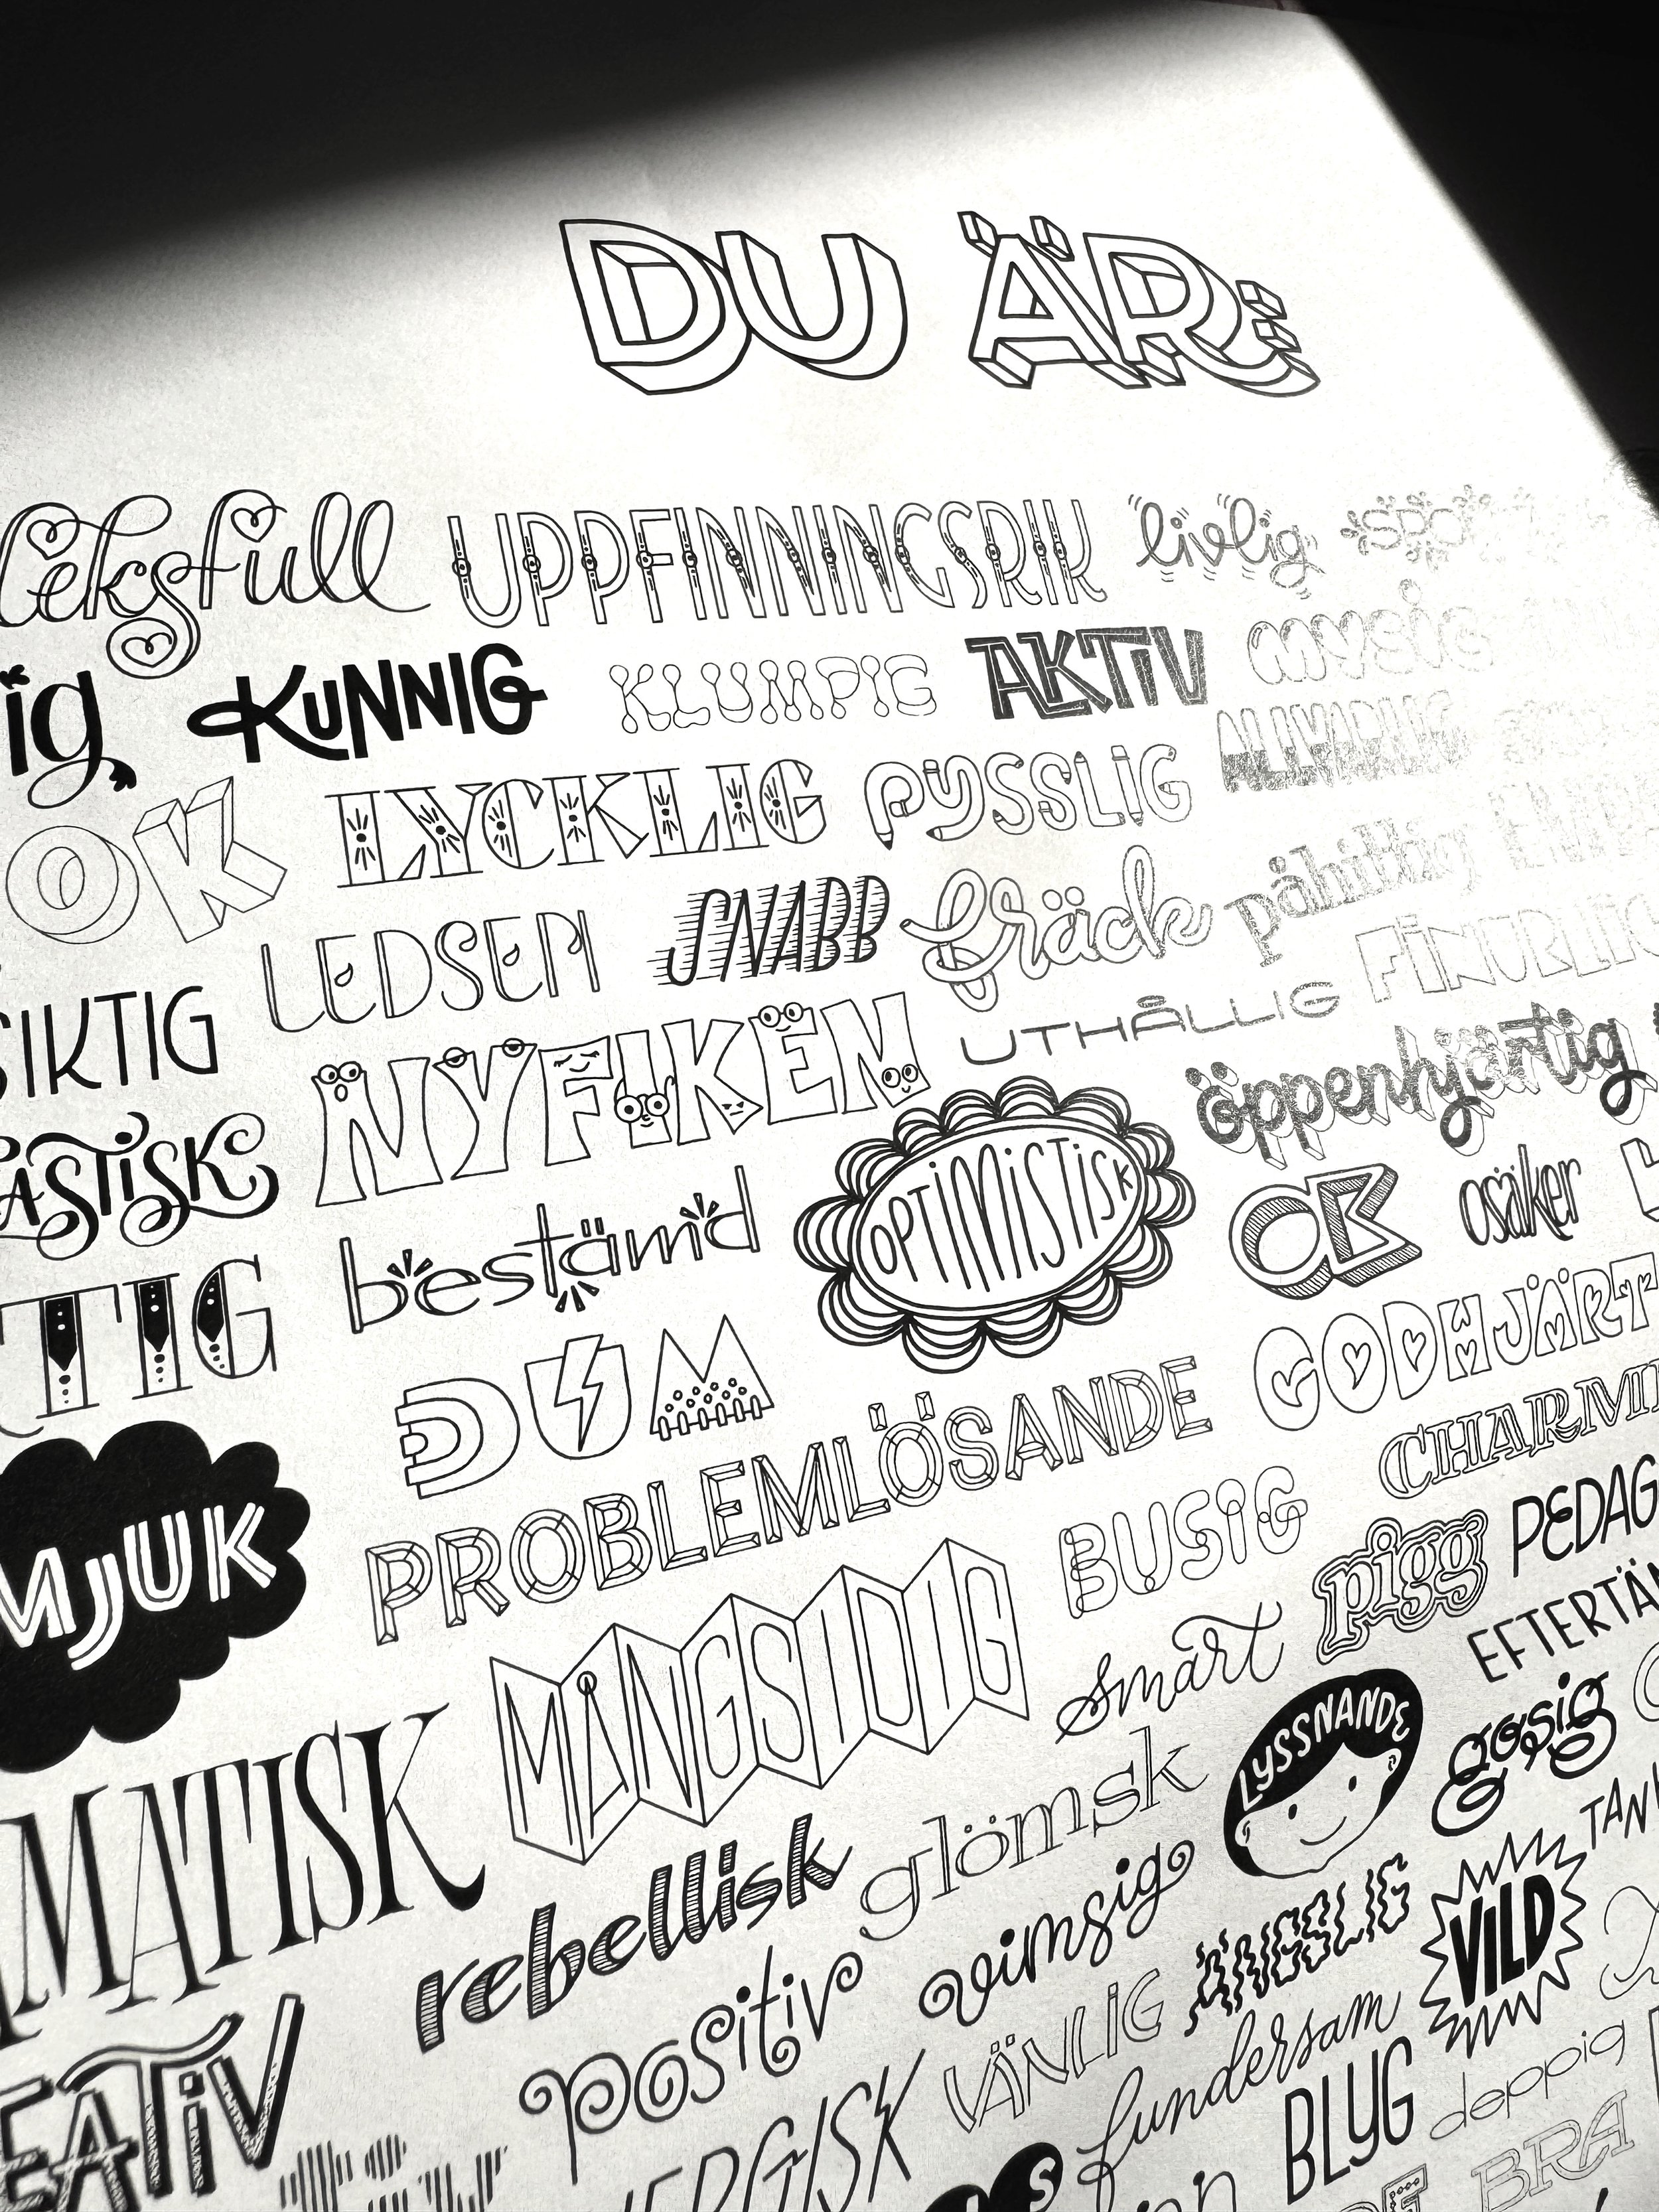 DU ÄR:
leksfull UPPFINNINGSRIK livlig
ig KUNNIG KLUMPIG AKTIV MYSIG
OK LYCKLIG PYSSLIG ALLVARLIG
SIKTIG LEDSEN SNABB fräck påhittig
NYFIKEN UTHÅLLIG FINURLIG
ASTISK bestämd OPTIMISTISK öppenhjärtig
TIG DUM OK osäker
MJUK PROBLEMLÖSANDE GODHJÄRT
MÅNGSIDIG BUSIG CHARMI
MATISK smart pigg PEDAG
rebellisk glömsk LYSSNANDE EFTERTÄN
EATIV positiv vimsig gosig
ERGISK VÄNLIG ÄNGSLIG VILD TANK
fundersam
BLYG deppig
BRA